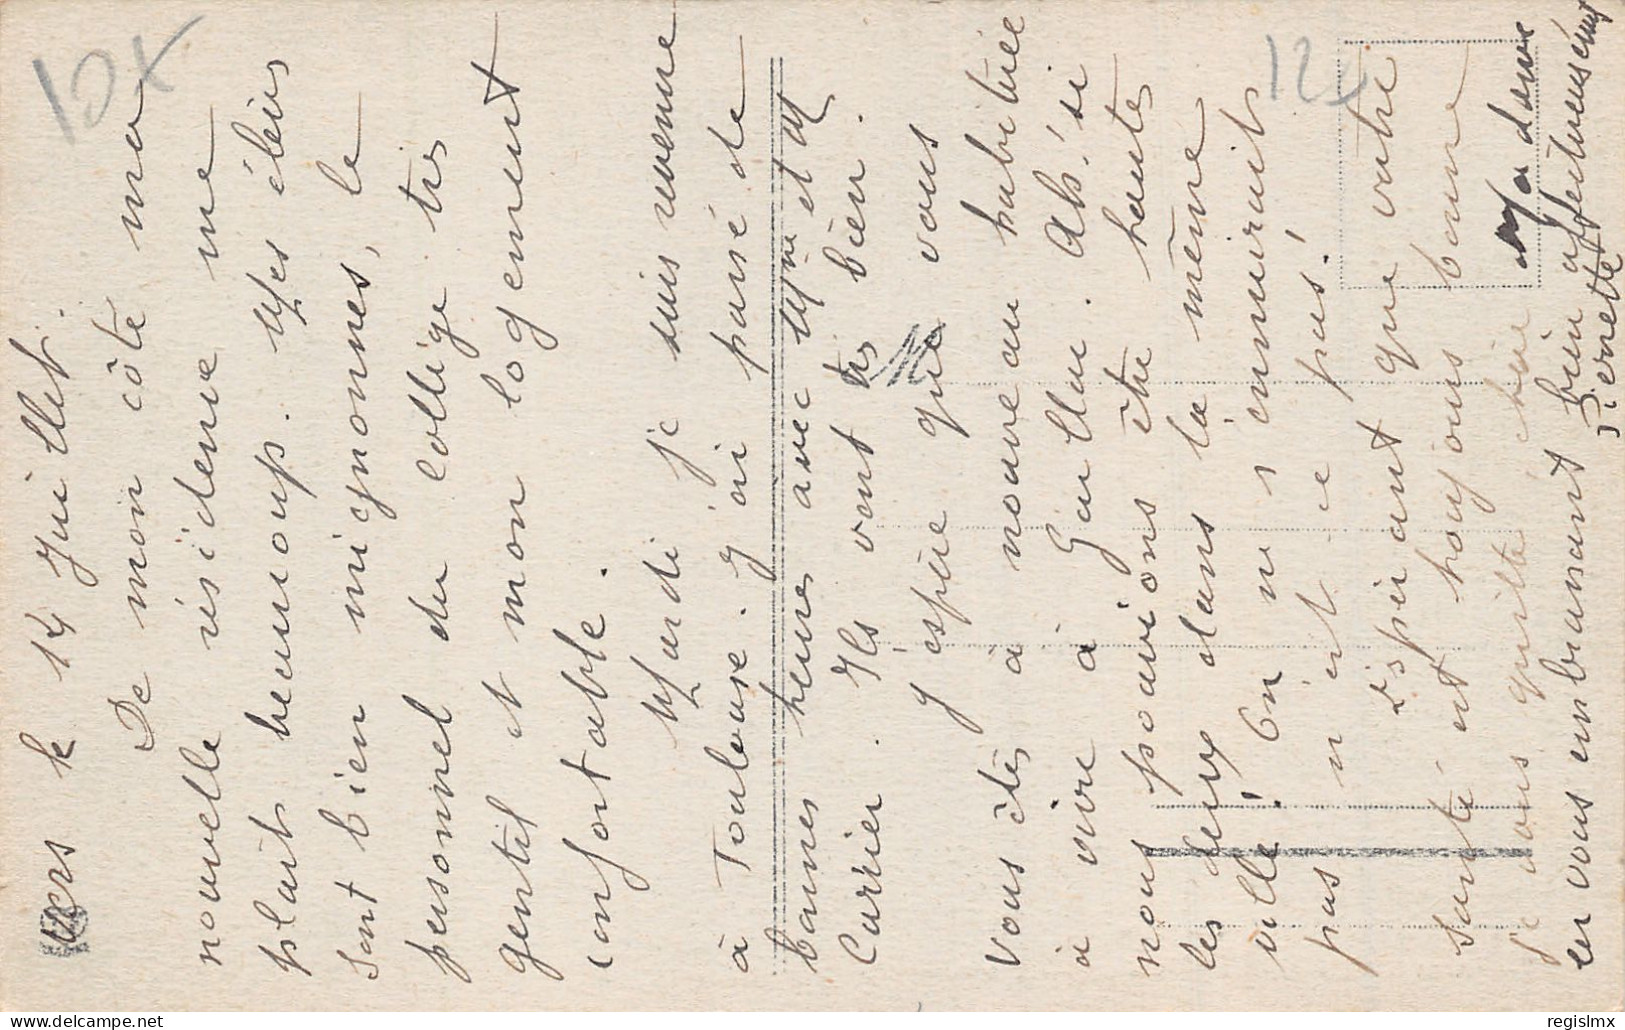 vers le 14 Juillet.
De mon côté ma
nouvelle résidence me
plait beaucoup. Mes élèves
sont bien mignonnes, le
personnel du collège très
gentil et mon logement
confortable.
Mardi je suis revenue
à Toulouse. J'ai passé de
bonnes heures avec Mme et M
Carrier. Ils vont très bien.
J'espère que vous
vous êtes à nouveau habituée
à vivre à Gaillac. Ah! si
nous pouvions être toutes
les deux dans la même
ville! On ne s'ennuierait
pas n'est ce pas!
Espérant que votre
santé est toujours bonne
je vous quitte chère Madame
en vous embrassant bien affectueusement
Pierrette
10x
12x
© Delcampe.net
regislmx